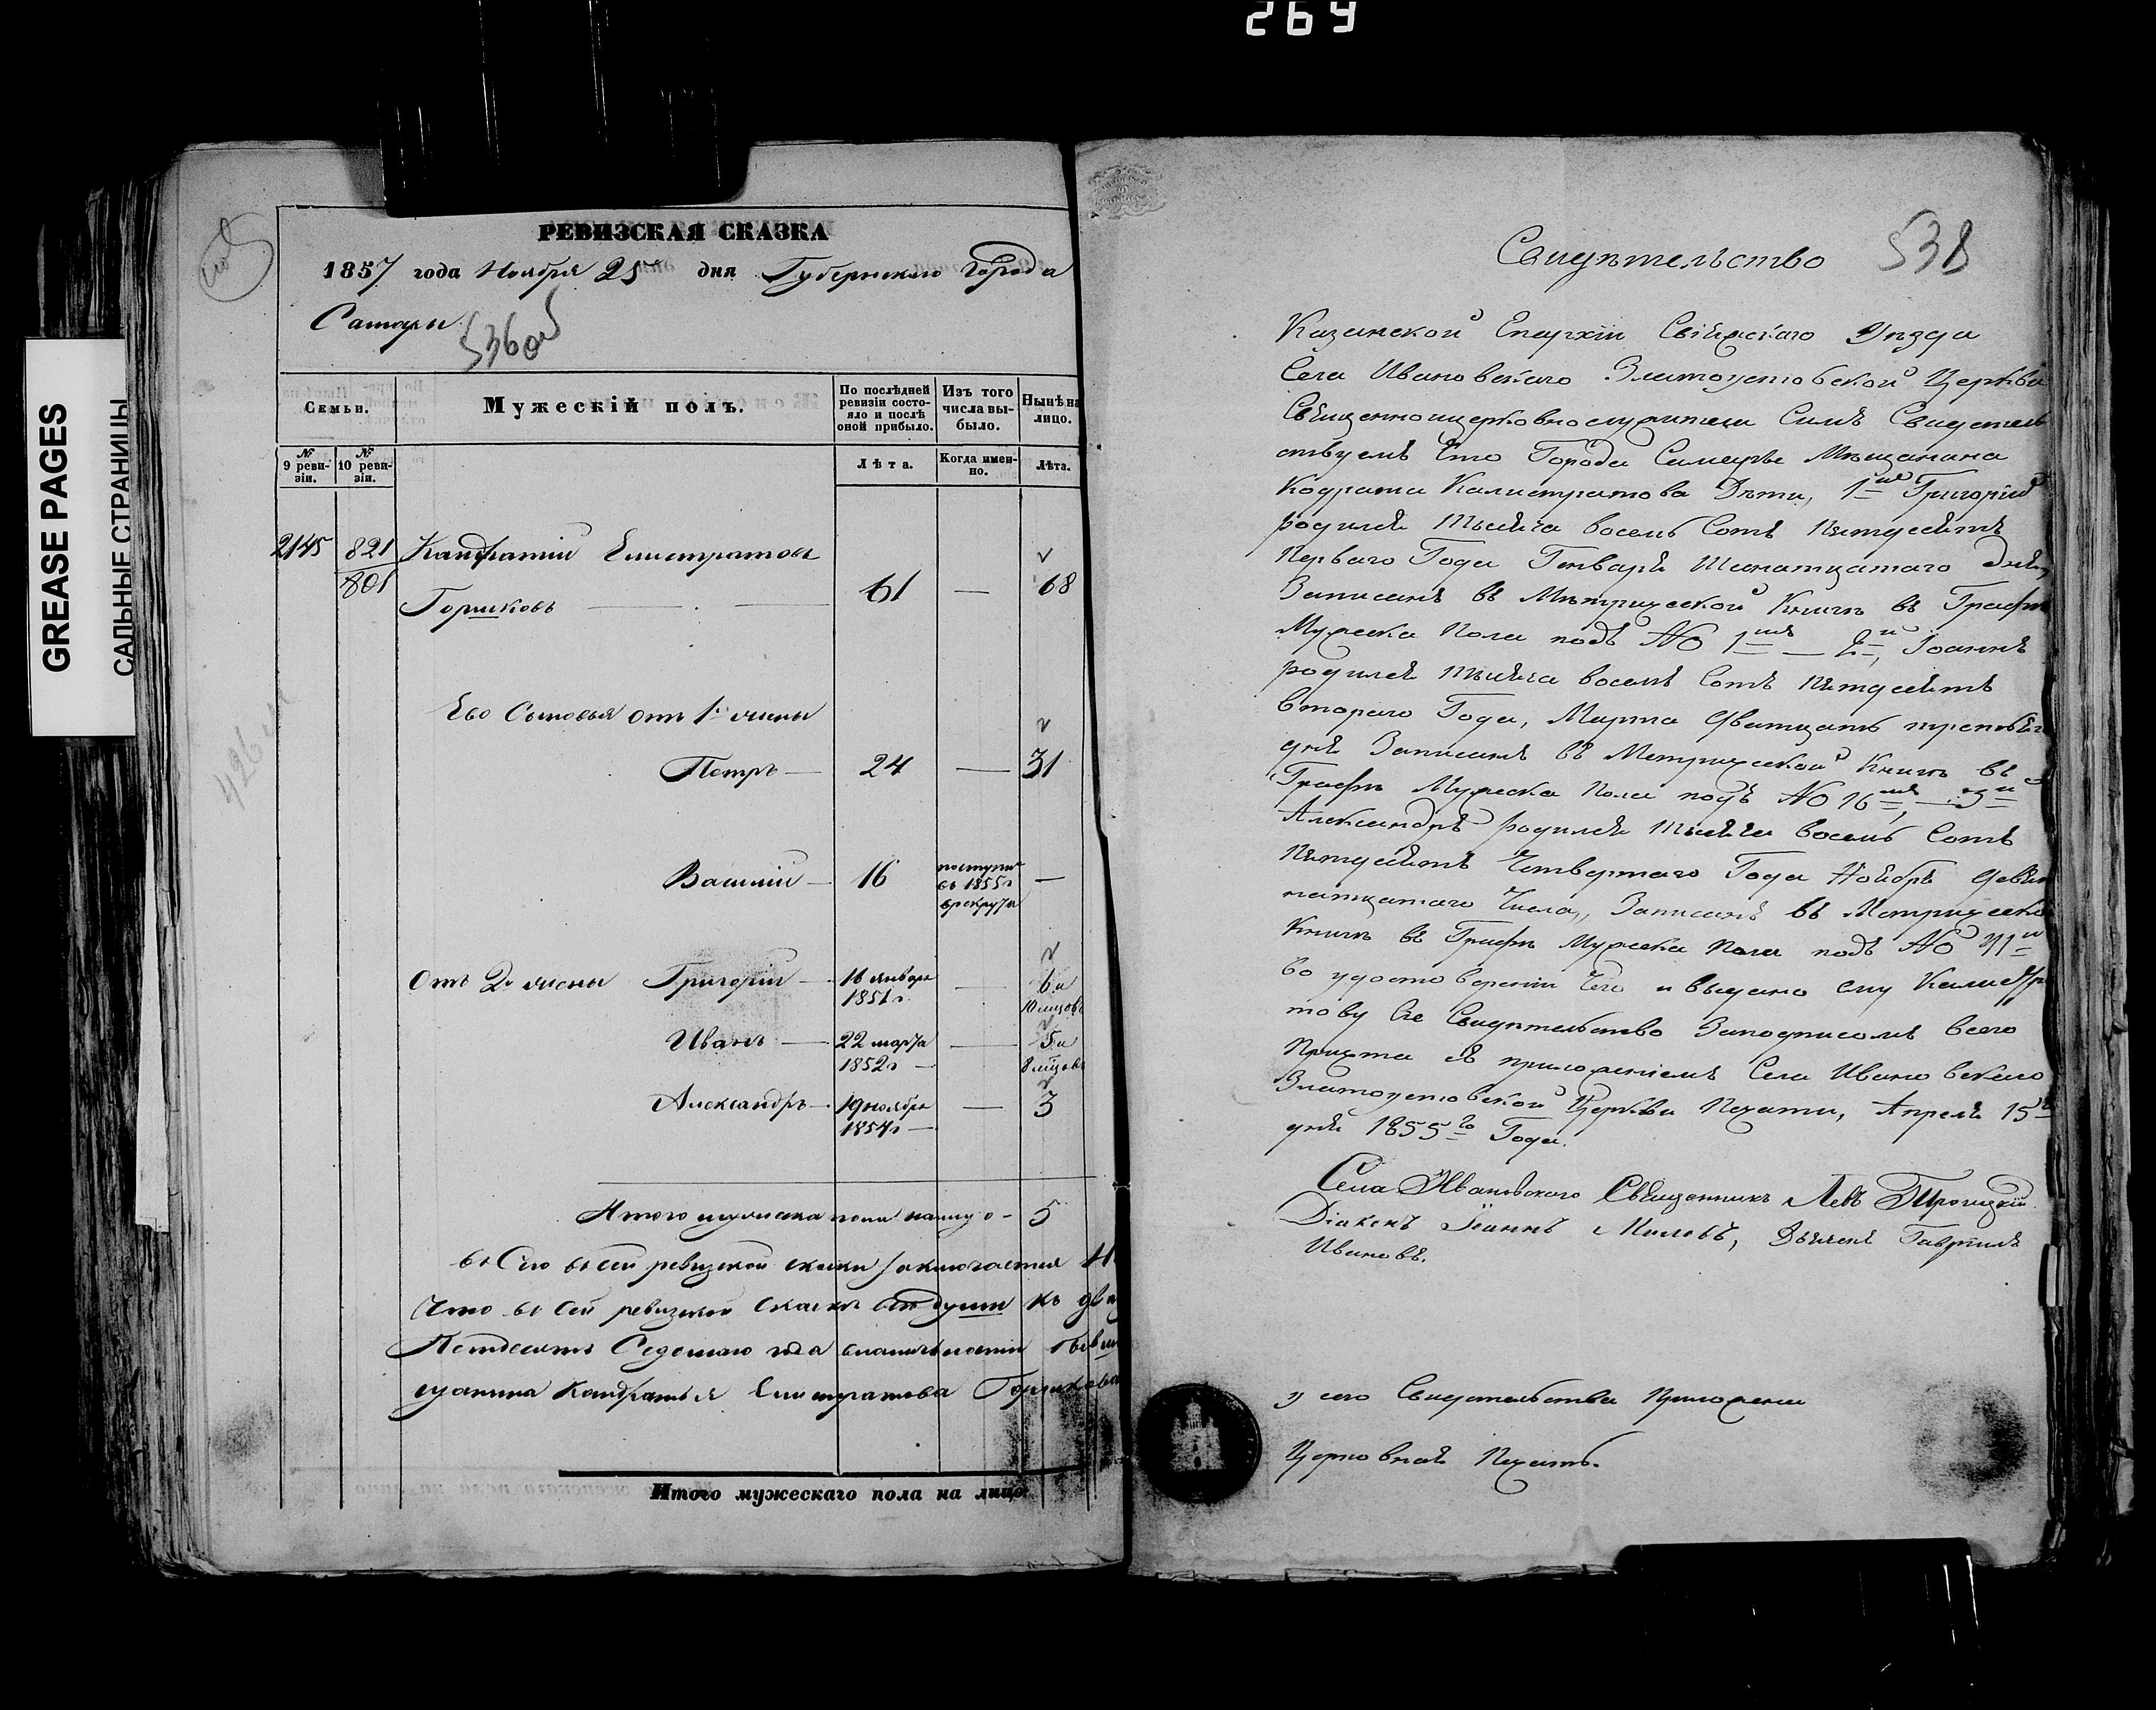 269
GREASE PAGES
САЛЬНЫЕ СТРАНИЦЫ
РЕВИЗСКАЯ СКАЗКА
1857 года Ноября 25 дня Губернскаго города
Самары
536об
Семьи.
Мужескій полъ.
По послѣдней ревизіи состояло и послѣ оной прибыло.
Изъ того числа выбыло.
Нынѣ на лицо.
№ 9 ревизіи.
№ 10 ревизіи.
Лѣта.
Когда именно.
Лѣта.
2145 821 Кандратій Елистратовъ
801 Горшковъ 61 — 68
Его Сыновья отъ 1й жены
Петръ — 24 — 31
Василий — 16 поступи въ 1855г врекрута —
Отъ 2й жены Григорій — 16 января 1851г. — 6 и 10 мцовъ
Иванъ — 22 марта 1852г — 5 и 8 мцовъ
Александръ — 19 ноября 1854г — 3
Итого мужеска пола налицо — 5
что въ сей ревизской скаске всѣ души къ
Петдесятъ Седьмаго года
щанина Кандратья Елистратова Горшкова
Итого мужескаго пола на лицо
Свидѣтельство 538
Казанской Епархіи Свіяжскаго Уѣзда
Села Ивановскаго Златоустовской Церкви
Священноицерковнослужители Симъ Свидетель
ствуемъ Что Города Самары Мѣщанина
Кодрата Калистратова Дѣти, 1й Григорій
родился тысяча восемь Сотъ Пятдесятъ
Перваго Года Генваря Шеснатцатаго дня,
Записанъ въ Мѣтрической Книгѣ въ Графѣ
Мужеска Пола подъ № 1мъ — 2й, Іоаннъ
родился тысяча восемь Сотъ Пятдесятъ
втораго Года, Марта дватцать
дня Записанъ въ Метрической Книгѣ въ
Графѣ Мужеска Пола подъ № 16мъ, — 3й
Александръ родился тысяча восемь Сотъ
Пятдесятъ Четвертаго Года Ноября девят
натцатаго Числа, Записанъ въ Метрическ
Книгѣ въ Графѣ Мужеска Пола подъ №
Во удостоверенiи Чего и выдано ему Калистра
тову Сіе Свидѣтельство Заподписомъ всего
Причта съ приложеніемъ Села Ивановскаго
Златоустовской Церкви Печати, Апреля 15
дня 1855го Года.
Села Ивановскаго Священникъ Левъ Троицкій
Діаконъ Іоаннъ Миловъ, Дьячекъ Гавріилъ
Ивановъ.
у сего Свидетельства Приложена
Церковная Печать.